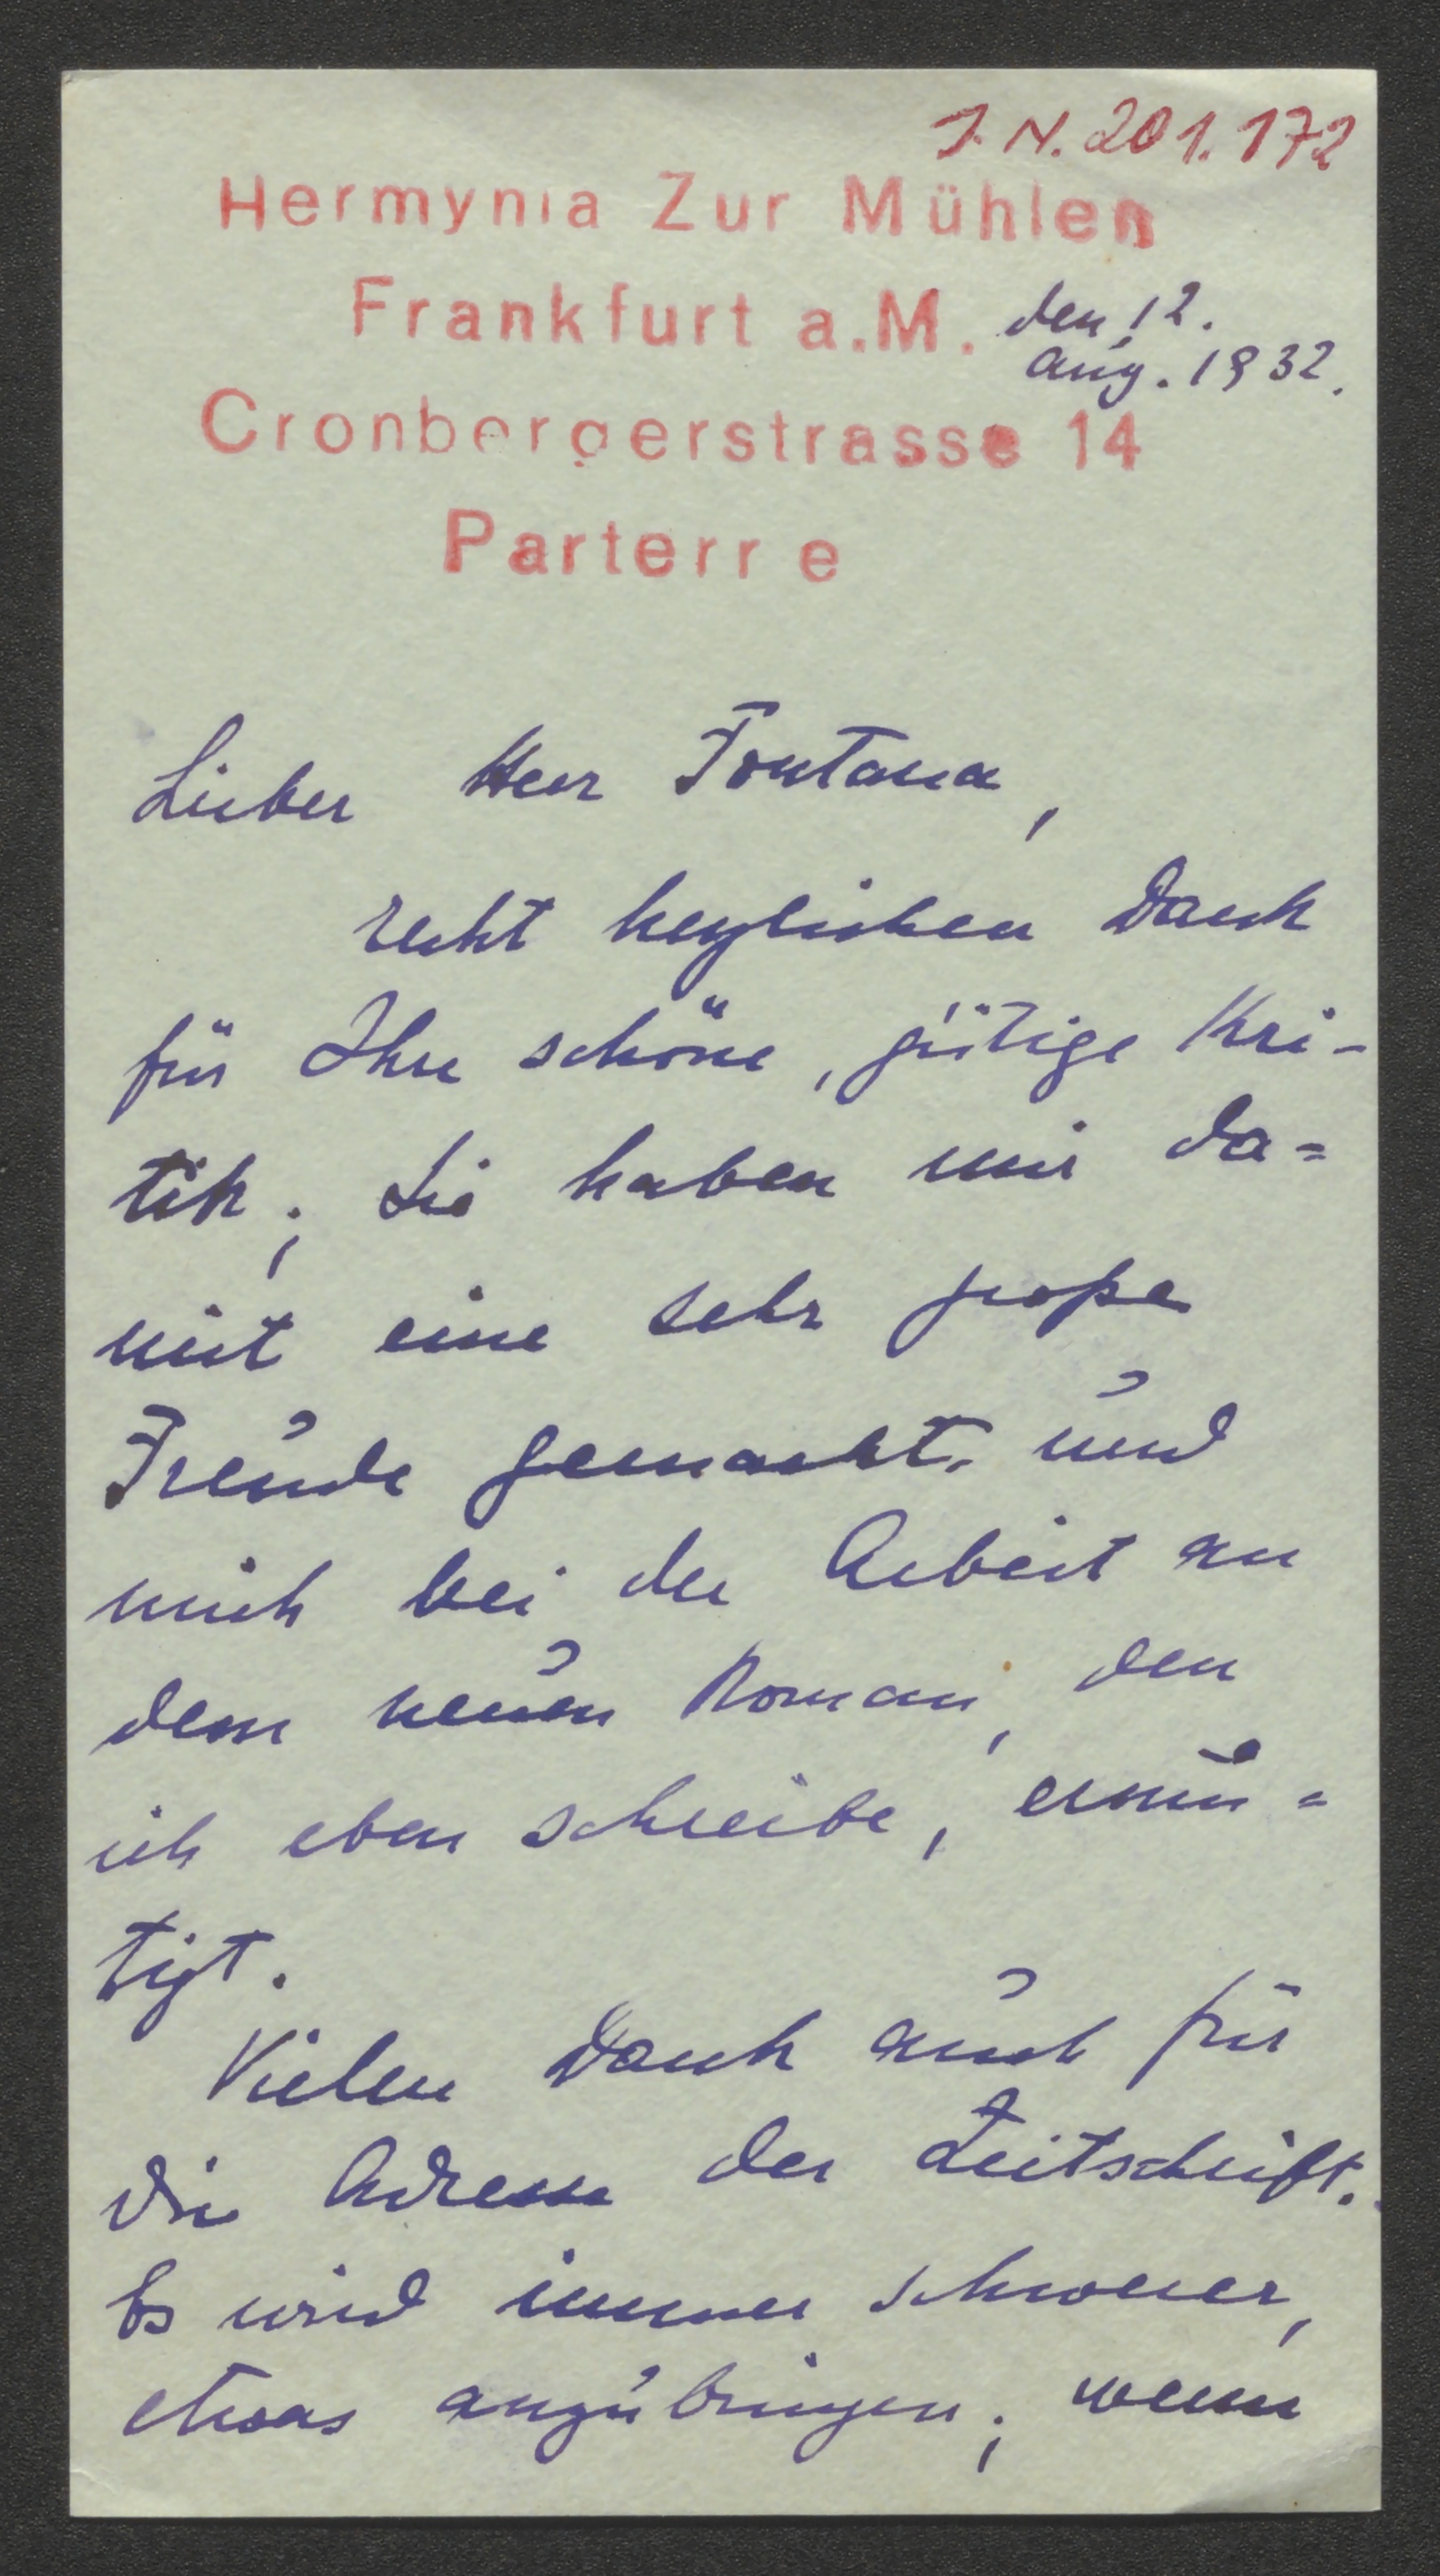 J. N. 201.172
Hermynia Zur Mühlen
Frankfurt a.M. den 12.
Aug. 1932.
Cronbergerstrasse 14
Parterre
Lieber Herr Fontana,
recht herzlichen Dank
für Ihre schöne, gütige Kri-
tik; Sie haben mir da=
mit eine sehr große
Freude gemacht und
mich bei der Arbeit an
dem neuen Roman, den
ich eben schreibe, ermu=
tigt.
Vielen Dank auch für
die Adresse der Zeitschrift.
Es wird immer schwerer,
etwas anzubringen; wenn